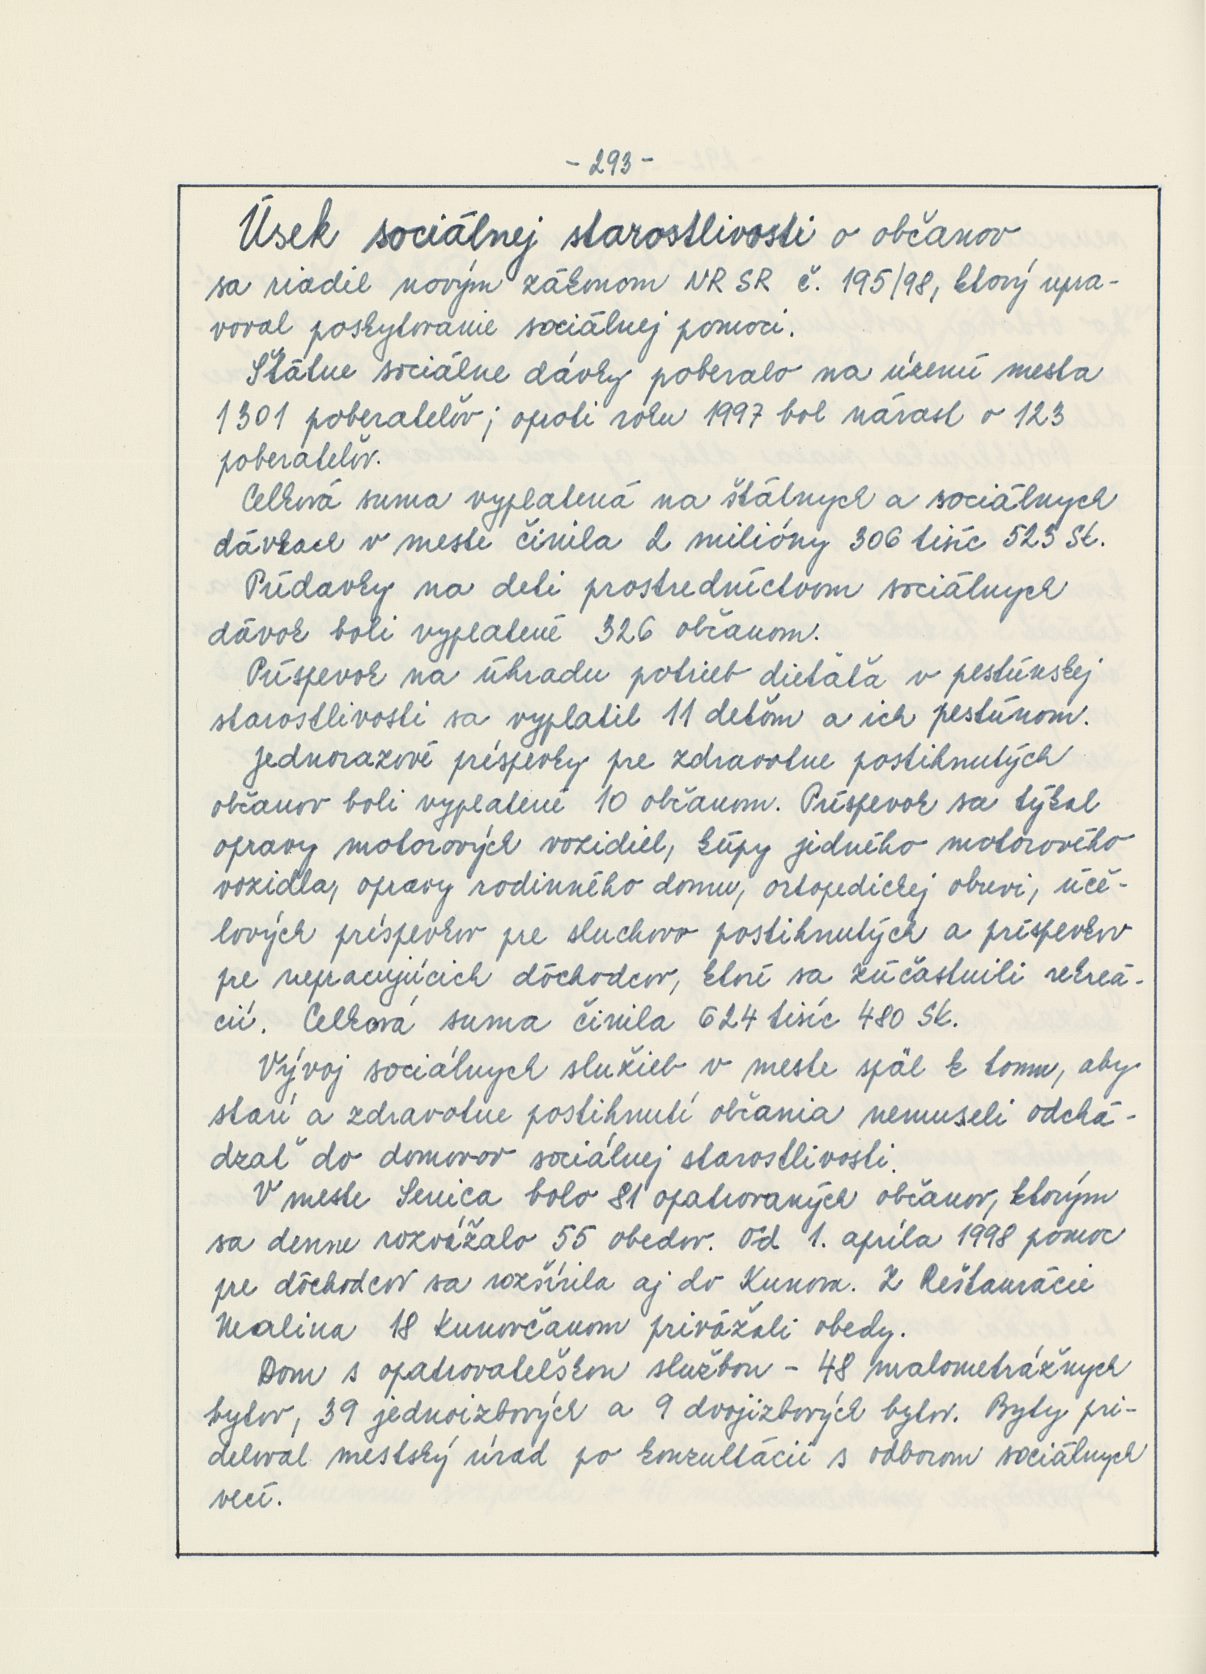 - 293 -
Úsek sociálnej starostlivosti o občanov
sa riadil novým zákonom NR SR č. 195/98, ktorý upra-
voval poskytovanie sociálnej pomoci.
Štátne sociálne dávky poberalo na území mesta
1301 poberateľov; oproti roku 1997 bol nárast o 123
poberateľov.
Celková suma vyplatená na štátnych a sociálnych
dávkach v meste činila 2 milióny 306 tisíc 523 Sk.
Prídavky na deti prostredníctvom sociálnych
dávok boli vyplatené 326 občanom.
Príspevok na úhradu potrieb dieťaťa v pestúnskej
starostlivosti sa vyplatil 11 deťom a ich pestúnom.
Jednorazové príspevky pre zdravotne postihnutých
občanov boli vyplatené 10 občanom. Príspevok sa týkal
opravy motorových vozidiel, kúpy jedného motorového
vozidla, opravy rodinného domu, ortopedickej obuvi, úče-
lových príspevkov pre sluchovo postihnutých a príspevkov
pre nepracujúcich dôchodcov, ktorí sa zúčastnili rekreá-
cií. Celková suma činila 624 tisíc 480 Sk.
Vývoj sociálnych služieb v meste späl k tomu, aby
starí a zdravotne postihnutí občania nemuseli odchá-
dzať do domovov sociálnej starostlivosti.
V meste Senica bolo 81 opatrovaných občanov, ktorým
sa denne rozvážalo 55 obedov. Od 1. apríla 1998 pomoc
pre dôchodcov sa rozšírila aj do Kunova. Z Reštaurácie
Malina 18 Kunovčanom privážali obedy.
Dom s opatrovateľskou službou - 48 malometrážnych
bytov, 39 jednoizbových a 9 dvojizbových bytov. Byty pri-
deloval mestský úrad po konzultácii s odborom sociálnych
vecí.